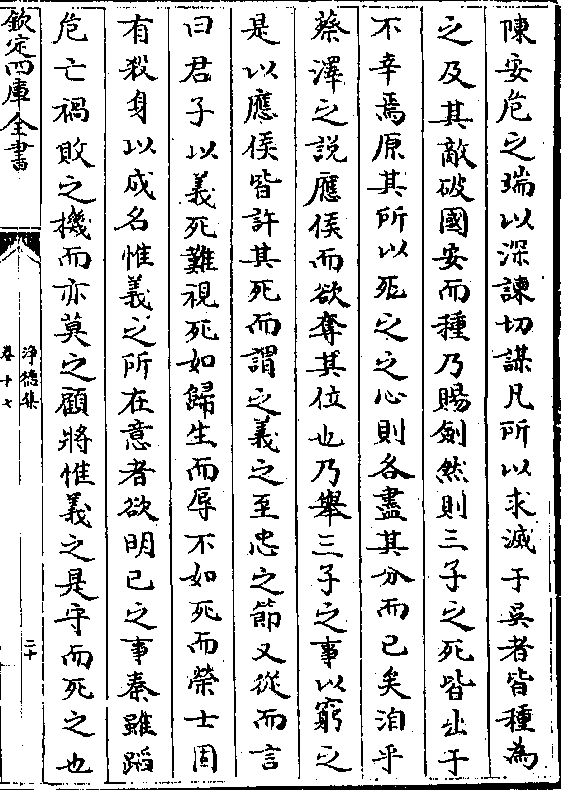 陳安危之瑞以深諫切謀凡所以求滅于吳者皆種為
之及其敵破國安而種乃賜劍然則三子之死皆出于
不幸焉原其所以死之之心則各盡其分而已矣洎乎
蔡澤之說應侯而欲奪其位也乃舉三子之事以窮之
是以應侯皆許其死而謂之義之至忠之節又從而言
曰君子以義死難視死如歸生而辱不如死而榮士固
有殺身以成名惟義之所在意者欲明已之事秦雖蹈
危亡禍敗之機而亦莫之顧將惟義之是守而死之也
欽定四庫全書
淨德集
卷十七
二十